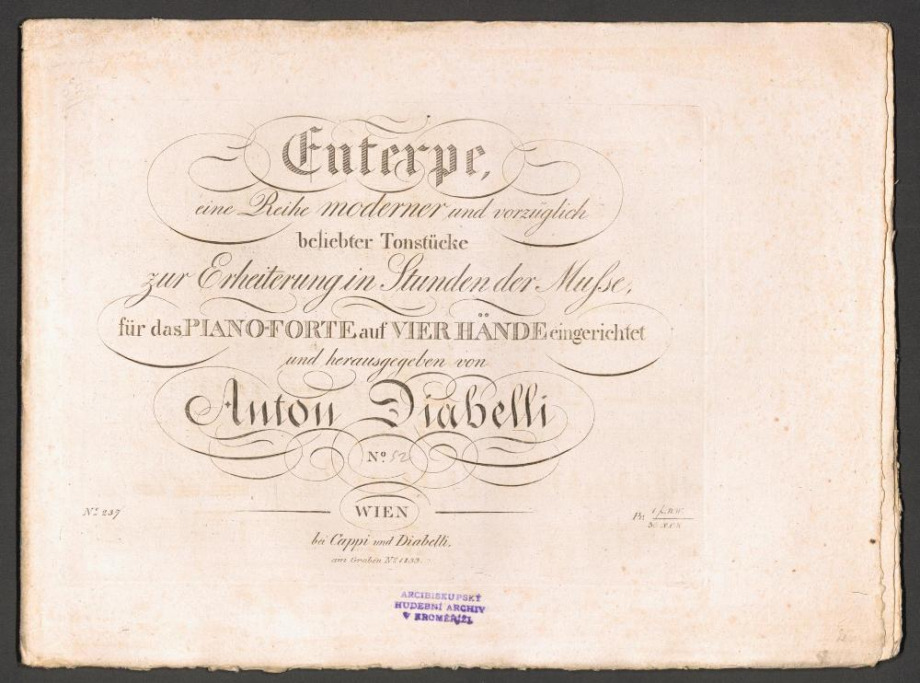 Euterpe,
eine Reihe moderner und vorzüglich
beliebter Tonstücke
zur Erheiterung in Stunden der Muſse,
für das PIANO-FORTE auf VIER HÄNDE eingerichtet
und herausgegeben von
Anton Diabelli
Nº 52
Nº 237
WIEN
Pr.
bei Cappi und Diabelli.
am Graben Nº 1133.
ARCIBISKUPSKÝ
HUDEBNÍ ARCHIV
V KROMĚŘÍŽI